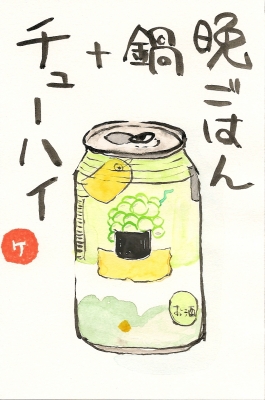 晩ごはん
鍋
+
チューハイ
お酒
ケ